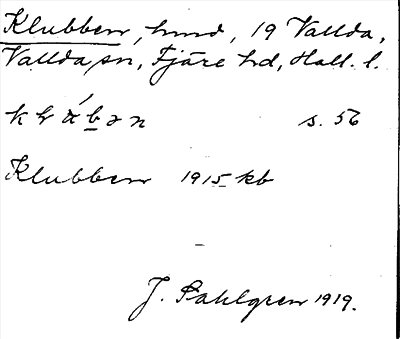 Klubben, hmd, 19 Vallda,
Vallda sn, Fjäre hd, Hall. l.
s. 56
Klubben 1915 kb
J. Sahlgren 1919.